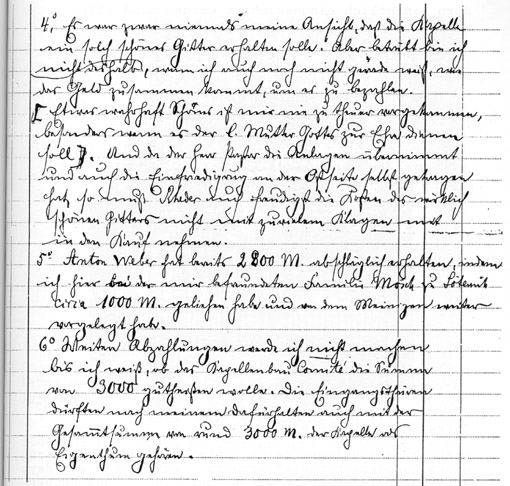 4.° Es war zwar niemals meine Ansicht, daß die Kapelle
ein solch schönes Gitter erhalten solle. Aber betrübt bin ich
nicht deshalb, wenn ich auch noch nicht gerade weiß, wie
das Geld zusammen kommt, um es zu bezahlen.
[Etwas wahrhaft Schönes ist mir nie zu theuer vorgekommen,
besonders wenn es der l. Mutter Gottes zur Ehre dienen
soll]. Und da der Herr Pastor die Anlagen übernimmt
und auch die Einfriedigung an der Ostseite selbst getragen
hat, so muß auch freudigst die Kosten des wirklich
schönen Gitters nicht mit zuvielem Klagen mit
in den Kauf nehmen.
5° Anton Weber hat bereits 2800 M. abschläglich erhalten, indem
ich hier bei der mir befreundeten Familie Monk zu
circa 1000 M. geliehen habe und von dem Meinigen weiter
vorgelegt habe.
6° Weiten Abzahlungen werde ich nicht machen
bis ich weiß, ob das Kapellenbau Comité die Summe
von 3000 gutheißen wolle. Die Eingangsthüren
dürften nach meinem Dafürhalten auch mit der
Gesammtsumme von rund 3000 M. der Kapelle als
Eigenthum gehören.